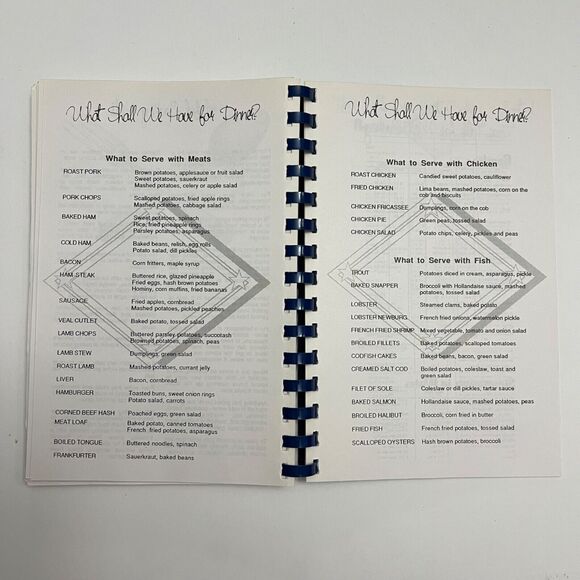 What Shall We Have for Dinner?
What to Serve with Meats
ROAST PORK Brown potatoes, applesauce or fruit salad
Sweet potatoes, sauerkraut
Mashed potatoes, celery or apple salad
PORK CHOPS Scalloped potatoes, fried apple rings
Mashed potatoes, cabbage salad
BAKED HAM Sweet potatoes, spinach
Rice, fried pineapple rings
Parsley potatoes, asparagus
COLD HAM Baked beans, relish, egg rolls
Potato salad, dill pickles
BACON Corn fritters, maple syrup
HAM STEAK Buttered rice, glazed pineapple
Fried eggs, hash brown potatoes
Hominy, corn muffins, fried bananas
SAUSAGE Fried apples, cornbread
Mashed potatoes, pickled peaches
VEAL CUTLET Baked potato, tossed salad
LAMB CHOPS Buttered parsley potatoes, succotash
Browned potatoes, spinach, peas
LAMB STEW Dumplings, green salad
ROAST LAMB Mashed potatoes, currant jelly
LIVER Bacon, cornbread
HAMBURGER Toasted buns, sweet onion rings
Potato salad, carrots
CORNED BEEF HASH Poached eggs, green salad
MEAT LOAF Baked potato, canned tomatoes
French fried potatoes, asparagus
BOILED TONGUE Buttered noodles, spinach
FRANKFURTER Sauerkraut, baked beans
What Shall We Have for Dinner?
What to Serve with Chicken
ROAST CHICKEN Candied sweet potatoes, cauliflower
FRIED CHICKEN Lima beans, mashed potatoes, corn on the
cob and biscuits
CHICKEN FRICASSEE Dumplings, corn on the cob
CHICKEN PIE Green peas, tossed salad
CHICKEN SALAD Potato chips, celery, pickles and peas
What to Serve with Fish
TROUT Potatoes diced in cream, asparagus, pickle
BAKED SNAPPER Broccoli with Hollandaise sauce, mashed
potatoes, tossed salad
LOBSTER Steamed clams, baked potato
LOBSTER NEWBURG French fried onions, watermelon pickle
FRENCH FRIED SHRIMP Mixed vegetable, tomato and onion salad
BROILED FILLETS Baked potato, scalloped tomatoes
CODFISH CAKES Baked beans, bacon, green salad
CREAMED SALT COD Boiled potatoes, coleslaw, toast and
green salad
FILET OF SOLE Coleslaw or dill pickles, tartar sauce
BAKED SALMON Hollandaise sauce, mashed potatoes, peas
BROILED HALIBUT Broccoli, corn fried in butter
FRIED FISH French fried potatoes, tossed salad
SCALLOPED OYSTERS Hash brown potatoes, broccoli